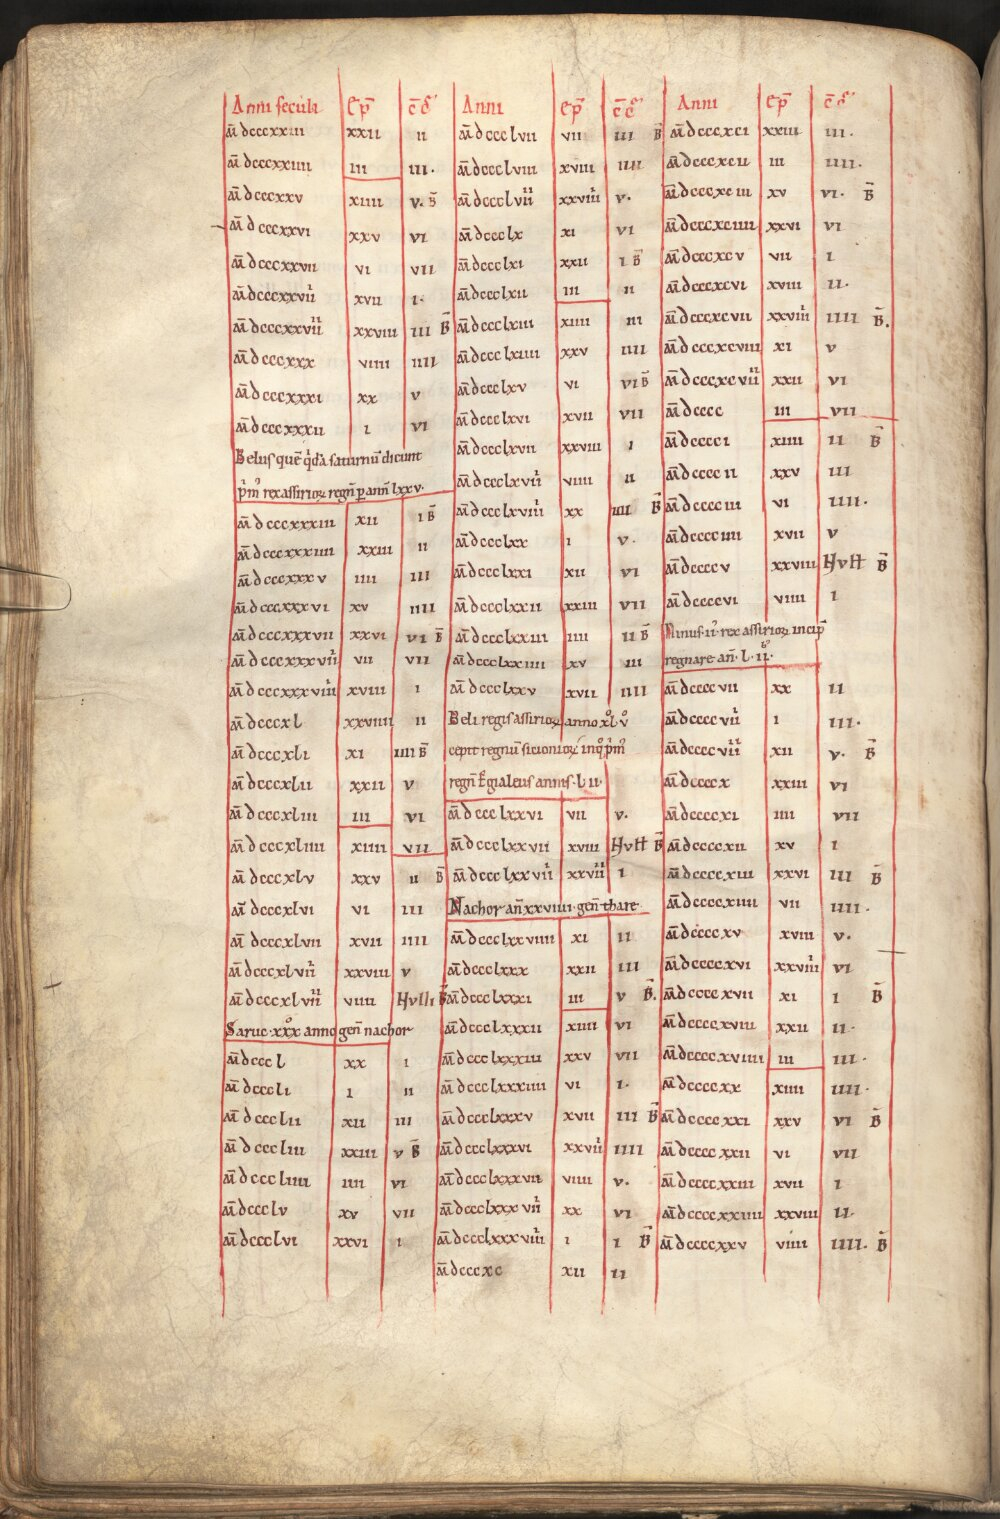 Anni seculi ep̄ c̄c̄
m̄dcccxxiii xxii ii
m̄dcccxxiiii iii iii.
m̄dcccxxv xiiii v. B̄
m̄dcccxxvi xxv vi
m̄dcccxxvii vi vii
m̄dcccxxviii xvii i.
m̄dcccxxviiii xxviii iii B̄
m̄dcccxxx viiii iiii
m̄dcccxxxi xx v
m̄dcccxxxii i vi
Belus quē q̄dā saturnū dicunt
p̄m' rex assirioꝝ regn̄ p ann̄ lxxv.
m̄dcccxxxiii xii i B̄
m̄dcccxxxiiii xxiii ii
m̄dcccxxxv iiii iii
m̄dcccxxxvi xv iiii
m̄dcccxxxvii xxvi vi B̄
m̄dcccxxxviii vii vii
m̄dcccxxxviiii xviii i
m̄dcccxl xxviiii ii
m̄dcccxli xi iiii B̄
m̄dcccxlii xxii v
m̄dcccxliii iii vi
m̄dcccxliiii xiiii vii
m̄dcccxlv xxv ii B̄
m̄dcccxlvi vi iii
m̄dcccxlvii xvii iiii
m̄dcccxlviii xxviii v
m̄dcccxlviiii viiii Hvlli B̄
Saruc xxxº anno gen̄ nachor
m̄dcccl xx i
m̄dcccli i ii
m̄dccclii xii iii
m̄dcccliii xxiii v B̄
m̄dcccliiii iiii vi
m̄dccclv xv vii
m̄dccclvi xxvi i
Anni ep̄ c̄c̄
m̄dccclvii vii iii B̄
m̄dccclviii xviii iiii
m̄dccclviiii xxviiii v.
m̄dccclx xi vi
m̄dccclxi xxii i B̄
m̄dccclxii iii ii
m̄dccclxiii xiiii iii
m̄dccclxiiii xxv iiii
m̄dccclxv vi vi B̄
m̄dccclxvi xvii vii
m̄dccclxvii xxviii i
m̄dccclxviii viiii ii
m̄dccclxviiii xx iiii B̄
m̄dccclxx i v.
m̄dccclxxi xii vi
m̄dccclxxii xxiii vii
m̄dccclxxiii iiii ii B̄
m̄dccclxxiiii xv iii
m̄dccclxxv xvii iiii
Beli regis assirioꝝ annoxlºvº
cepit regnū sicionioꝝ inq̊ p̄m'
regn̄t̄ gialeus annis.lii.
m̄dccclxxvi vii v.
m̄dccclxxvii xviii Hvlt B̄
m̄dccclxxviii xxviiii i
Nachor an̄ xxviiii gen̄ thare
m̄dccclxxviiii xi ii
m̄dccclxxx xxii iii
m̄dccclxxxi iii v B̄.
m̄dccclxxxii xiiii vi
m̄dccclxxxiii xxv vii
m̄dccclxxxiiii vi i.
m̄dccclxxxv xvii iii B̄
m̄dccclxxxvi xxviii iiii
m̄dccclxxxvii viiii v.
m̄dccclxxxviii xx vi
m̄dccclxxxviiii i i B̄
m̄dcccxc xii ii
Anni ep̄ c̄c̄
m̄dcccxci xxiii iii.
m̄dcccxcii iii iiii.
m̄dcccxciii xv vi. B̄
m̄dcccxciiii xxvi vi
m̄dcccxcv vii i
m̄dcccxcvi xviii ii.
m̄dcccxcvii xxviiii iiii B̄.
m̄dcccxcviii xi v
m̄dcccxcviiii xxii vi
m̄dcccc iii vii
m̄dcccci xiiii ii B̄
m̄dccccii xxv iii
m̄dcccciii vi iiii.
m̄dcccciiii xvii v
m̄dccccv xxviii Hvlt B̄
m̄dccccvi viiii i
Ninus.ii' rex assirioꝝ incip̄
regnare an̄.l.iiº.
m̄dccccvii xx ii
m̄dccccviii i iii.
m̄dccccviiii xii v. B̄
m̄dccccx xxiii vi
m̄dccccxi iiii vii
m̄dccccxii xv i
m̄dccccxiii xxvi iii B̄
m̄dccccxiiii vii iiii.
m̄dccccxv xviii v.
m̄dccccxvi xxviiii vi
m̄dccccxvii xi i B̄
m̄dccccxviii xxii ii.
m̄dccccxviiii iii iii.
m̄dccccxx xiiii iiii.
m̄dccccxxi xxv vi B̄
m̄dccccxxii vi vii
m̄dccccxxiii xvii i
m̄dccccxxiiii xxviii ii.
m̄dccccxxv viiii iiii. B̄